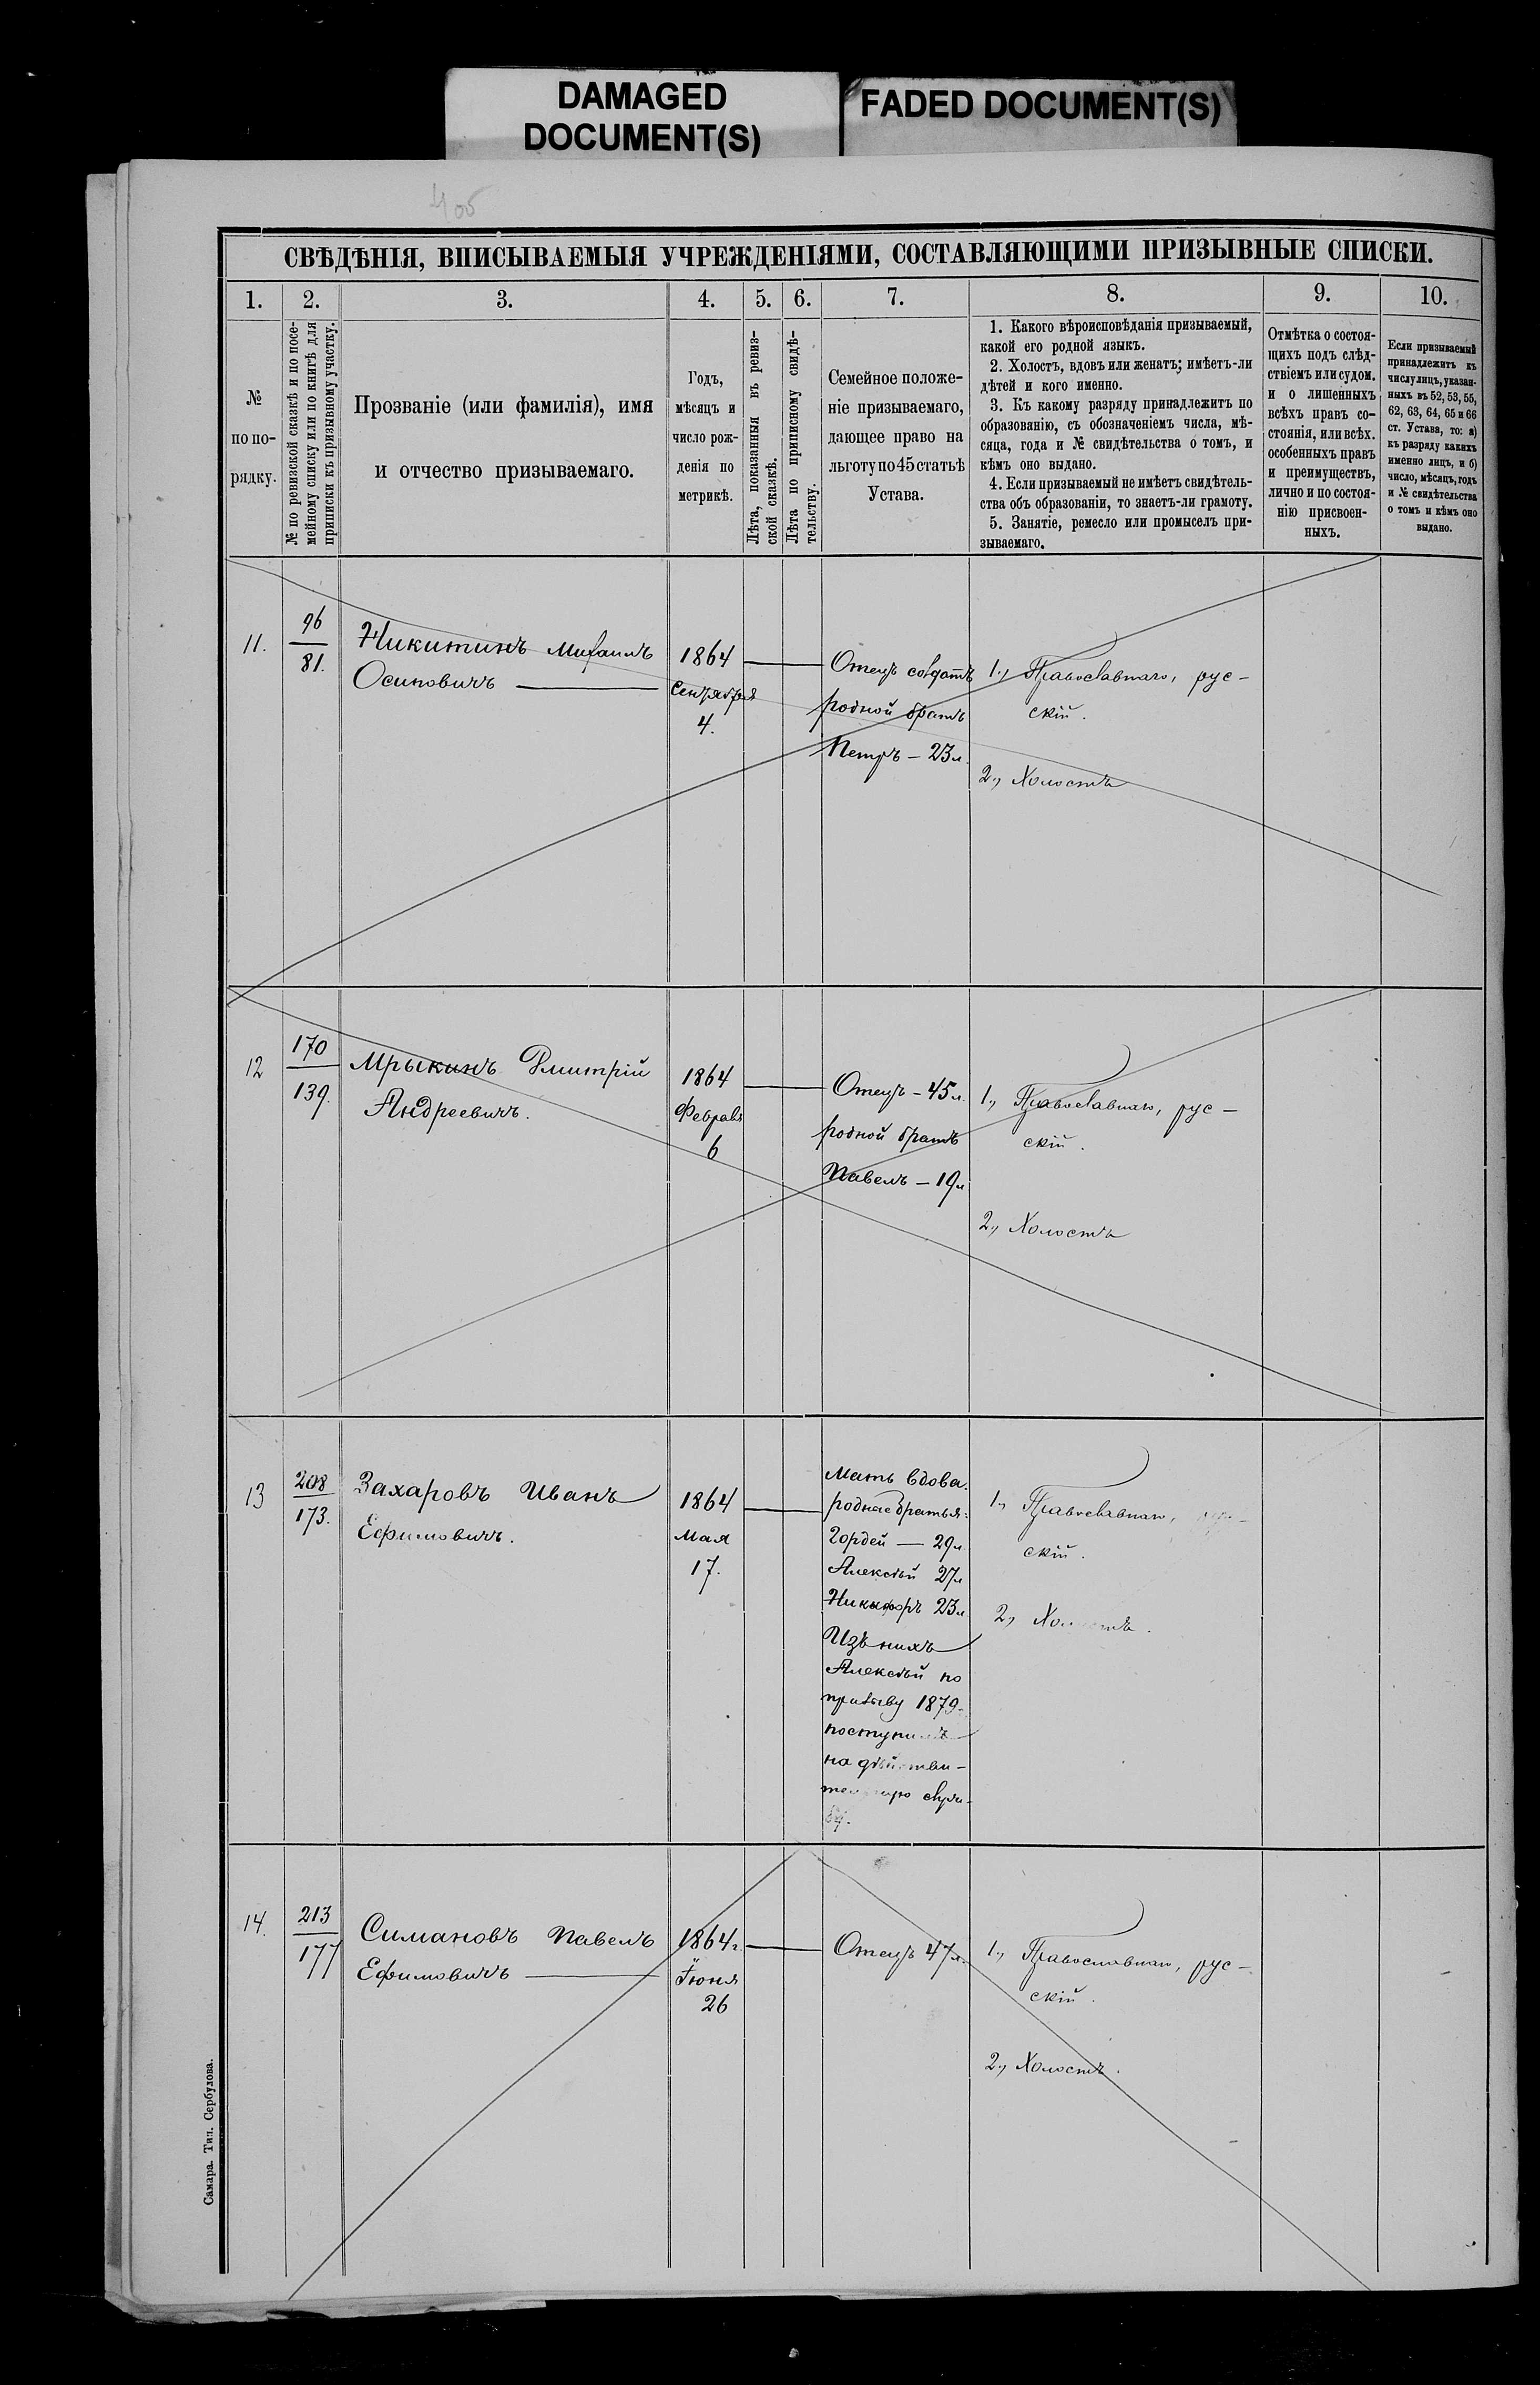 DAMAGED
DOCUMENT(S)
FADED DOCUMENT(S)
405
СВѢДѢНІЯ, ВПИСЫВАЕМЫЯ УЧРЕЖДЕНІЯМИ, СОСТАВЛЯЮЩИМИ ПРИЗЫВНЫЕ СПИСКИ.
1. 2. 3. 4. 5. 6. 7. 8. 9. 10.
№
по по-
рядку.
№ по ревизской сказкѣ и по посе-
мейному списку или по книгѣ для
приписки къ призывному участку.
Прозваніе (или фамилія), имя
и отчество призываемаго.
Годъ,
мѣсяцъ и
число рож-
денія по
метрикѣ.
Лѣта, показанныя въ ревиз-
ской сказкѣ.
Лѣта по приписному свидѣ-
тельству.
Семейное положе-
ніе призываемаго,
дающее право на
льготу по 45 статьѣ
Устава.
1. Какого вѣроисповѣданія призываемый,
какой его родной языкъ.
2. Холостъ, вдовъ или женатъ; имѣетъ-ли
дѣтей и кого именно.
3. Къ какому разряду принадлежитъ по
образованію, съ обозначеніемъ числа, мѣ-
сяца, года и № свидѣтельства о томъ, и
кѣмъ оно выдано.
4. Если призываемый не имѣетъ свидѣтель-
ства объ образованіи, то знаетъ-ли грамоту.
5. Занятіе, ремесло или промыселъ при-
зываемаго.
Отмѣтка о состоя-
щихъ подъ слѣд-
ствіемъ или судом.
и о лишенныхъ
всѣхъ правъ со-
стоянія, или всѣх.
особенныхъ правъ
и преимуществъ,
лично и по состоя-
нію присвоен-
ныхъ.
Если призываемый
принадлежитъ къ
числу лицъ, указан-
ныхъ въ 52, 53, 55,
62, 63, 64, 65 и 66
ст. Устава, то: а)
къ разряду какихъ
именно лицъ, и б)
число, мѣсяцъ, годъ
и № свидѣтельства
о томъ и кѣмъ оно
выдано.
11.
96
81.
Никитинъ Михаилъ
Осиповичъ
1864
Сентября
4.
Отецъ солдатъ
родной братъ
Петръ – 23 л.
1., Православнаго, рус-
скій.
2., Холостъ
12
170
139.
Мрыкинъ Дмитрій
Андреевичъ.
1864
Февраля
6
Отецъ – 45 л.
родной братъ
Павелъ – 19 л
1., Православнаго, рус-
скій.
2., Холостъ
13
208
173.
Захаровъ Иванъ
Ефимовичъ.
1864
Мая
17.
Мать вдова.
родные братья:
Гордей — 29 л
Алексѣй 27 л
Никифоръ 23 л
Изъ нихъ
Алексѣй по
призыву 1879
поступилъ
на дѣйстви-
тельную служ-
бу.
1., Православнаго, рус-
скій.
2., Холостъ.
14.
213
177
Симановъ Павелъ
Ефимовичъ
1864 г.
Іюня
26
Отецъ 47 л.
1., Православнаго, рус-
скій.
2., Холостъ.
Самара. Тип. Сербулова.